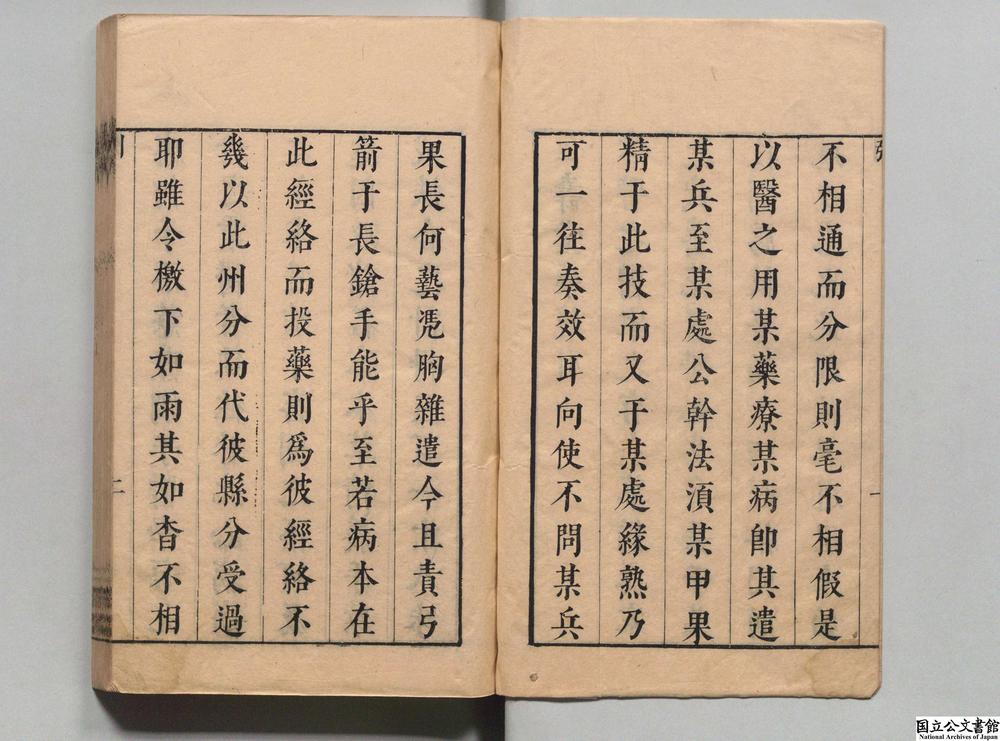 不相通而分限則毫不相假是
以醫之用某藥療某病卽其遣
某兵至某處公幹法湏某甲果
精于此技而又于某處緣熟乃
可一往奏效耳向使不問某兵
果長何藝凴胸雜遣今且責弓
箭于長鎗手能乎至若病本在
此經絡而投藥則爲彼經絡不
幾以此州分而代彼縣分受過
耶雖令檄下如雨其如杳不相
一
二
国立公文書館
National Archives of Japan